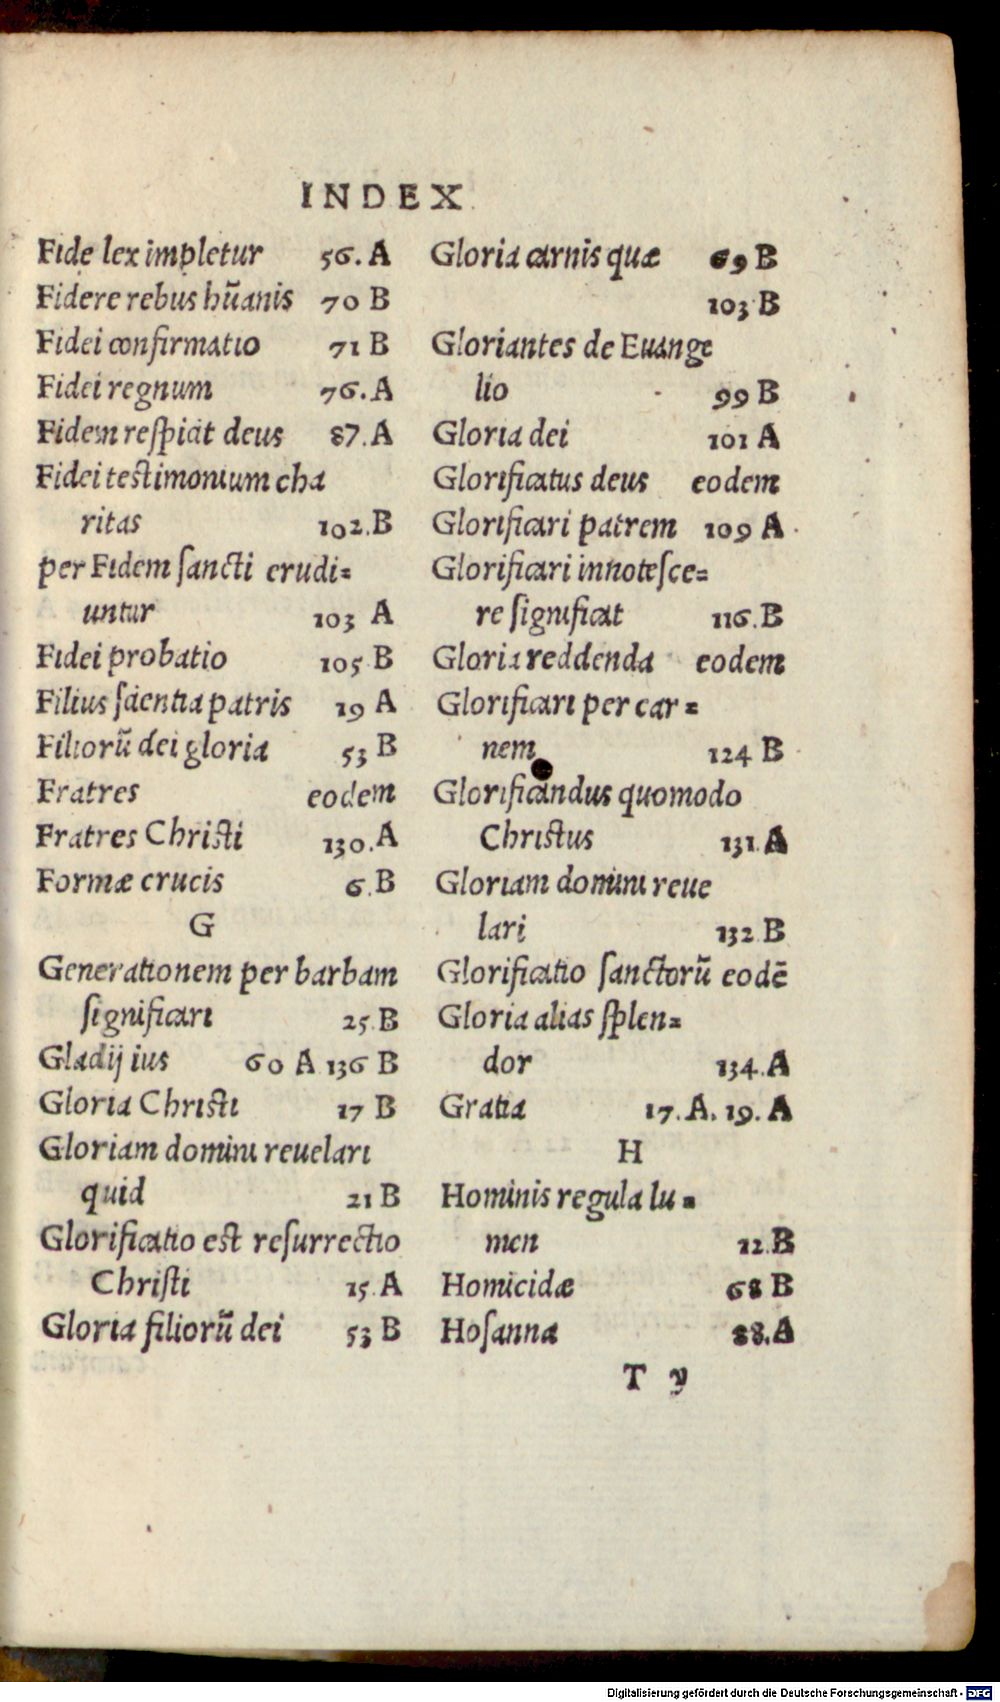 INDEX
Fide lex impletur 56. A
Fidere rebus hũanis 70 B
Fidei confirmatio 71 B
Fidei regnum 76. A
Fidem respicit deus 87. A
Fidei testimonium cha
ritas 102. B
per Fidem sancti erudi=
untur 103 A
Fidei probatio 105 B
Filius scientia patris 19 A
Filiorũ dei gloria 53 B
Fratres eodem
Fratres Christi 130. A
Formæ crucis 6. B
G
Generationem per barbam
significari 25 B
Gladij ius 60 A 136 B
Gloria Christi 17 B
Gloriam domini reuelari
quid 21 B
Glorificatio est resurrectio
Christi 15 A
Gloria filiorũ dei 53 B
Gloria carnis quæ 69 B
103 B
Gloriantes de Euange
lio 99 B
Gloria dei 101 A
Glorificatus deus eodem
Glorificari patrem 109 A
Glorificari innotesce=
re significat 116. B
Gloria reddenda eodem
Glorificari per car=
nem 124 B
Glorificandus quomodo
Christus 131. A
Gloriam domini reue
lari 132 B
Glorificatio sanctorũ eodẽ
Gloria alias splen=
dor 134. A
Gratia 17. A. 19. A
H
Hominis regula lu=
men 12. B
Homicidæ 68 B
Hosanna 88. A
T y
Digitalisierung gefördert durch die Deutsche Forschungsgemeinschaft - DFG